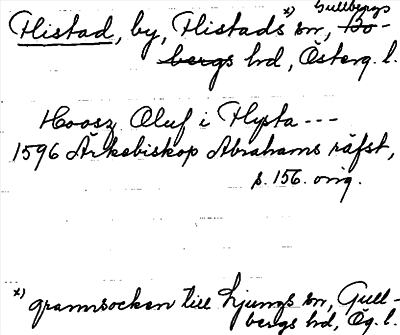 Flistad, by, Flistads x) sn, Gullbergs Bo-
bergs hd, Österg. l.
Hoosz Oluf i Flysta ---
1596 Ärkebiskop Abrahams räfst,
s. 156. orig.
x) grannsocken till Ljungs sn, Gull-
bergs hd, Ög. l.